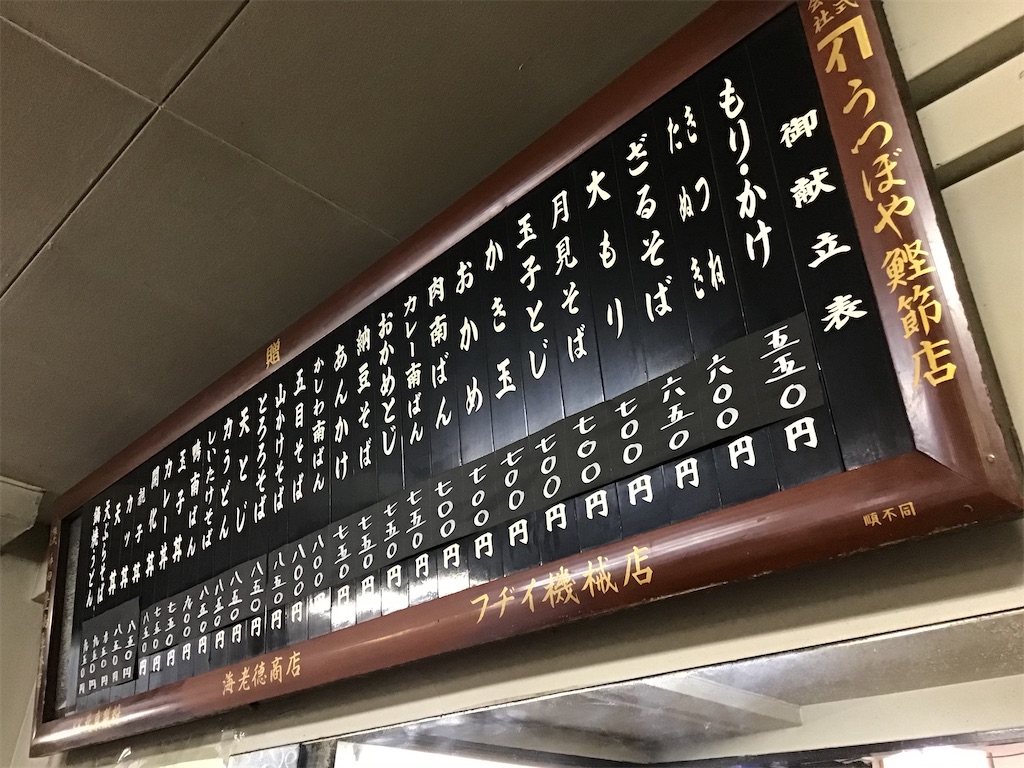 うつぼや鰹節店
御献立表
もり・かけ 五五〇円
たぬき きつね 六〇〇円
ざるそば 六五〇円
大もり 七〇〇円
月見そば 七〇〇円
玉子とじ 七〇〇円
かき玉 七〇〇円
おかめ 七〇〇円
肉南ばん 七〇〇円
カレー南ばん 七五〇円
おかめとじ 七五〇円
納豆そば 七五〇円
あんかけ 七五〇円
かしわ南ばん 八〇〇円
五目そば 八〇〇円
山かけそば 八五〇円
とろろそば 八五〇円
天とじ 八五〇円
力うどん 八五〇円
しいたけそば 八五〇円
鴨南ばん 九〇〇円
玉子丼 七五〇円
カレー丼 七五〇円
開化丼 八五〇円
親子丼
カツ丼
天丼
天ぷらそば
鍋焼うどん
贈
順不同
フヂイ機械店
海老徳商店